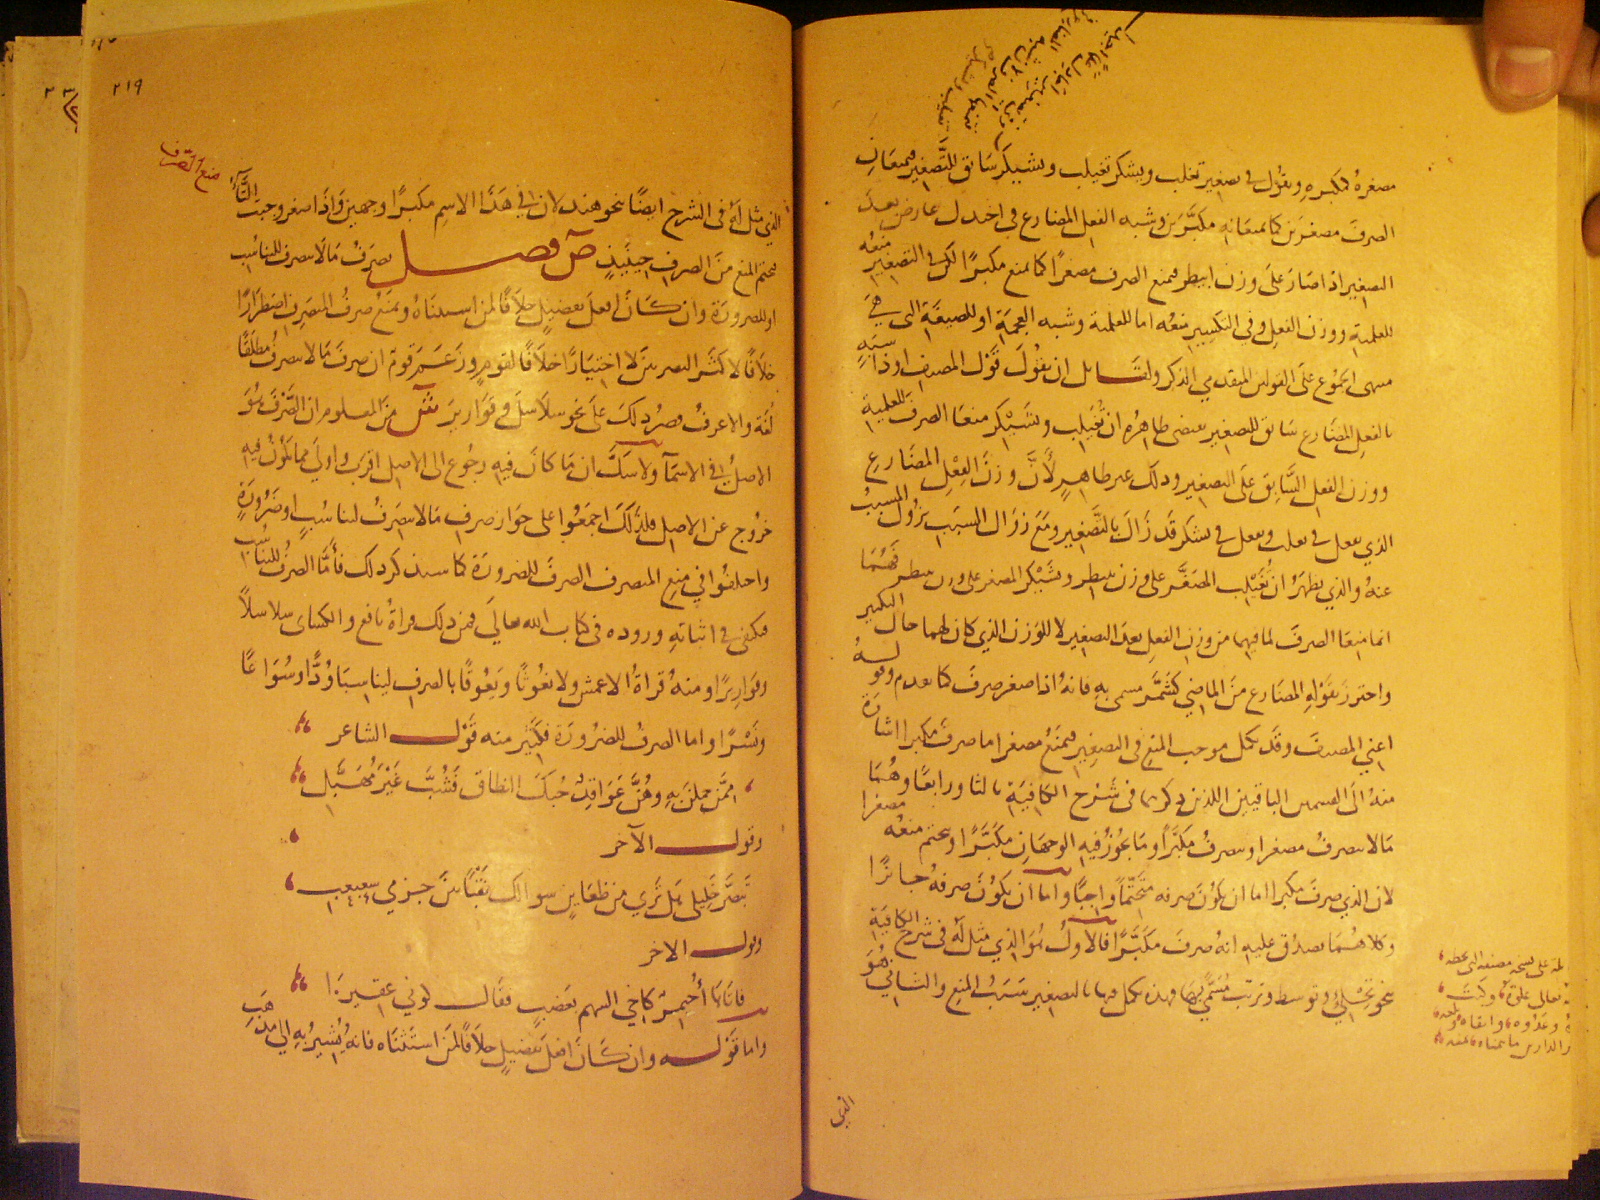 مصغره كمكبره وتقول في تصغير تغلب ويشكر تغيلب ويشيكر سابق للتصغير فيمنعان
الصرف مصغرين كما يمنعانه مكبرين وشبه الفعل المضارع في اجدل عارض بعد
التصغير اذا صار على وزن ابيطر فيمنع الصرف مصغرا كما يمنع مكبرا لكن في التصغير منعه
للعلمية ووزن الفعل وفي التكبير منعه اما للعلمية وشبه العجمة او للصيغة التي هي
على القولين المتقدمي الذكر ولقائل ان يقول قول المصنف اوذا شبه
بالفعل المضارع سابق للتصغير يقتضي ظاهره ان تغيلب ويشيكر منعا الصرف للعلمية
ووزن الفعل السابق على التصغير وذلك غير ظاهر لأن وزن الفعل المضارع
الذي تفعل في تغلب ويفعل في يشكر قد زال بالتصغير ومع زوال السبب يزول المسبب
عنه والذي يظهر ان تغيلب المصغر على وزن تبيطر ويشيكر المصغر على وزن يبيطر فهما
انما منعا الصرف لما فيهما من وزن الفعل بعد التصغير لا للوزن الذي كان لهما حال التكبير
واحترز بقوله المضارع من الماضي كشمر مسمى به فانه اذا صغر صرف كما تقدم وقوله
اعني المصنف وقد يكمل موجب المنع في التصغير فيمنع مصغرا ما صرف مكبرا اشارة
منه الى القسمين الباقيين اللذين ذكرهما في شرح الكافية ثالثا ورابعا وهما
ما لا ينصرف مصغرا وينصرف مكبرا وما يجوز فيه الوجهان مكبرا ويتحتم منعه مصغرا
لان الذي صرف مكبرا اما ان يكون صرفه متحتما واجبا واما ان يكون صرفه جائزا
وكلاهما يصدق عليه انه صرف مكبرا فالاول هو الذي مثل له في شرح الكافية
نحو تحلئ وتوسط وترتب مسمى بها فهذه يكمل فيها بالتصغير سبب المنع والثاني هو
الذي
٢١٩
منع الصرف
الذي مثل له في الشرح ايضا نحو هند لان في هذا الاسم مكبرا وجهين واذا صغر وجبت التاء
فتحتم المنع من الصرف حينئذ ص فصل يصرف ما لا ينصرف للتناسب
او للضرورة وان كان افعل تفضيل خلافا لمن استثناه ويمنع صرف المنصرف اضطرارا
خلافا لاكثر البصريين لا اختيارا خلافا لقوم وزعم قوم ان صرف ما لا ينصرف مطلقا
لغة والاعرف قصر ذلك على نحو سلاسل وقوارير ش من المعلوم ان الصرف هو
الاصل في الاسماء ولا شك ان ما كان فيه رجوع الى الاصل اقرب واولى مما يكون فيه
خروج عن الاصل فلذلك اجمعوا على جواز صرف ما لا ينصرف لتناسب او ضرورة
واختلفوا في منع المنصرف الصرف للضرورة كما سنذكر ذلك فأما الصرف للتناسب
فيكفي في اثباته وروده في كتاب الله تعالى فمن ذلك قراة نافع والكسائي سلاسلا
وقواريرا ومنه قراة الاعمش ولا يغوثا ويعوقا بالصرف ليناسبا ودا وسواعا
ونسرا واما الصرف للضرورة فكثير منه قول الشاعر
ممن حملن به وهن عواقد حبك النطاق فشب غير مهبل
وقول الآخر
تبصر خليلي هل ترى من ظعاين سوالك نقبا بين حزمي شعبعب
وقول الاخر
فاتاها أحيمر كاخي السهم بعضب فقال كوني عقيرا
واما قوله وان كان افعل تفضيل خلافا لمن استثناه فانه يشير به الى مذهب